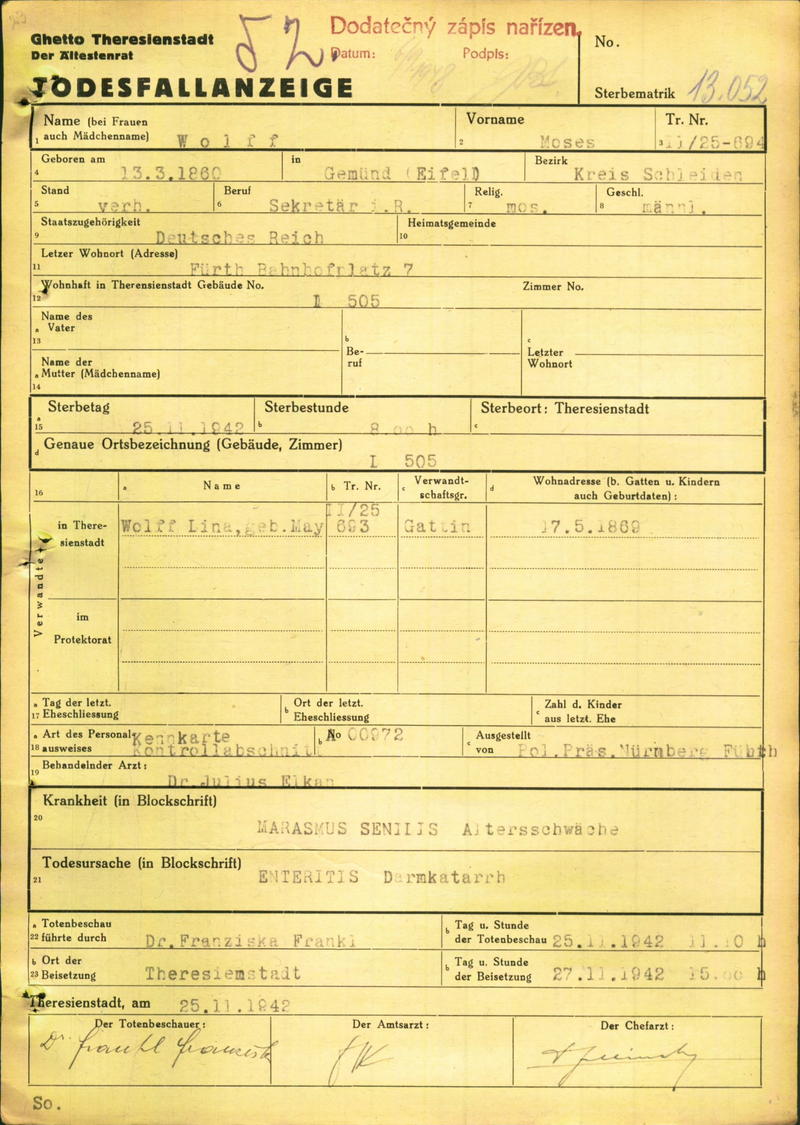 52
Dodatečný zápis nařízen.
Datum: Podpis:
Ghetto Theresienstadt
Der Ältestenrat
TODESFALLANZEIGE
No.
Sterbematrik 13.052
Name (bei Frauen auch Mädchenname)
1 Wolff
Vorname
2 Moses
Tr. Nr.
3 II/25-694
Geboren am
4 13.3.1860
in
Gemünd (Eifel)
Bezirk
Kreis Schleiden
Stand
5 verh.
Beruf
6 Sekretär i.R.
Relig.
7 mos.
Geschl.
8 männl.
Staatszugehörigkeit
9 Deutsches Reich
Heimatsgemeinde
10
Letzer Wohnort (Adresse)
11 Fürth Bahnhofplatz 7
Wohnhaft in Therensienstadt Gebäude No. Zimmer No.
12 L 505
Name des
a Vater
13
Name der
a Mutter (Mädchenname)
14
b
Be-
ruf
c
Letzter
Wohnort
Sterbetag
a 15 25.11.1942
Sterbestunde
b 8 oo h
Sterbeort: Theresienstadt
c
d Genaue Ortsbezeichnung (Gebäude, Zimmer)
L 505
16 a Name b Tr. Nr. c Verwandt-schaftsgr. d Wohnadresse (b. Gatten u. Kindern auch Geburtdaten):
Verwandte
in There-
sienstadt
II/25
Wolff Lina, geb.May 693 Gattin 17.5.1869
im
Protektorat
a Tag der letzt.
17 Eheschliessung
b Ort der letzt.
Eheschliessung
c Zahl d. Kinder
aus letzt. Ehe
a Art des Personal- Kennkarte
18 ausweises Kontrollabschnitt
b No 00972
c Ausgestellt
von Pol.Präs.Nürnberg Fürth
Behandelnder Arzt:
19 Dr.Julius Elkan
Krankheit (in Blockschrift)
20
MARASMUS SENILIS Altersschwäche
Todesursache (in Blockschrift)
21 ENTERITIS Darmkatarrh
a Totenbeschau
22 führte durch Dr.Franziska Frankl
b Tag u. Stunde
der Totenbeschau 25.11.1942 11.10 h
b Ort der
23 Beisetzung Theresiemstadt
b Tag u. Stunde
der Beisetzung 27.11.1942 15.oo h
Theresienstadt, am 25.11.1942
Der Totenbeschauer: Der Amtsarzt: Der Chefarzt:
So.